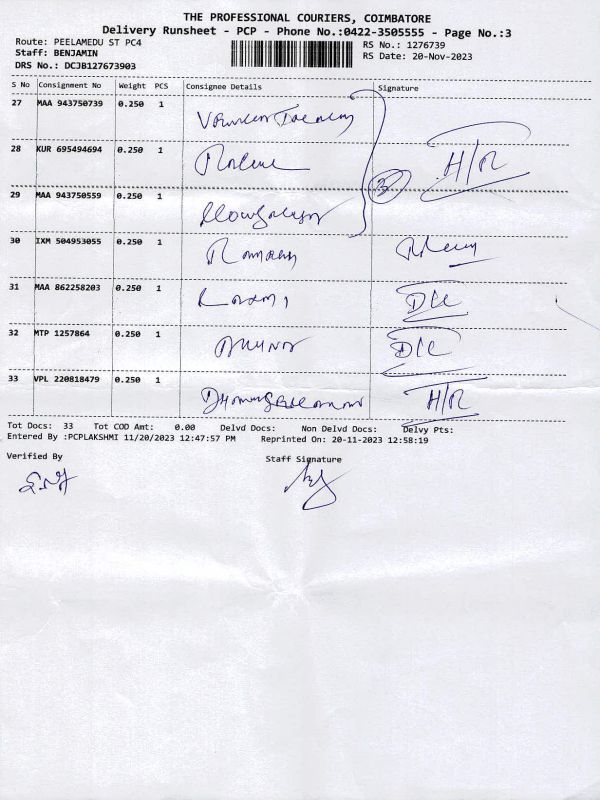 THE PROFESSIONAL COURIERS, COIMBATORE
Delivery Runsheet - PCP - Phone No.:0422-3505555 - Page No.:3
Route: PEELAMEDU ST PC4
RS No.: 1276739
Staff: BENJAMIN
RS Date: 20-Nov-2023
DRS No.: DCJB127673903
S No Consignment No Weight PCS Consignee Details Signature
27 MAA 943750739 0.250 1
28 KUR 695494694 0.250 1 H/R
29 MAA 943750559 0.250 1 3
30 IXM 504953055 0.250 1
31 MAA 862258203 0.250 1
32 MTP 1257864 0.250 1
33 VPL 220818479 0.250 1 H/R
Tot Docs: 33 Tot COD Amt: 0.00 Delvd Docs: Non Delvd Docs: Delvy Pts:
Entered By :PCPLAKSHMI 11/20/2023 12:47:57 PM Reprinted On: 20-11-2023 12:58:19
Verified By Staff Signature